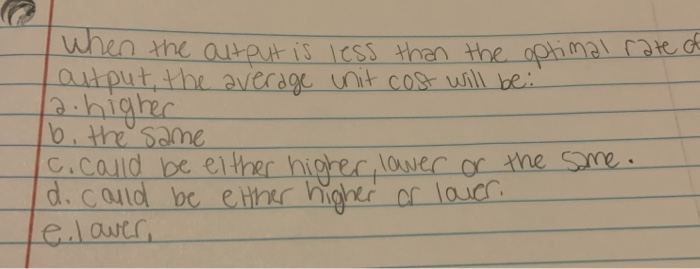 When the output is less than the optimal rate of
output, the average unit cost will be:
a. higher
b. the same
c. could be either higher, lower or the same.
d. could be either higher or lower.
e. lower.